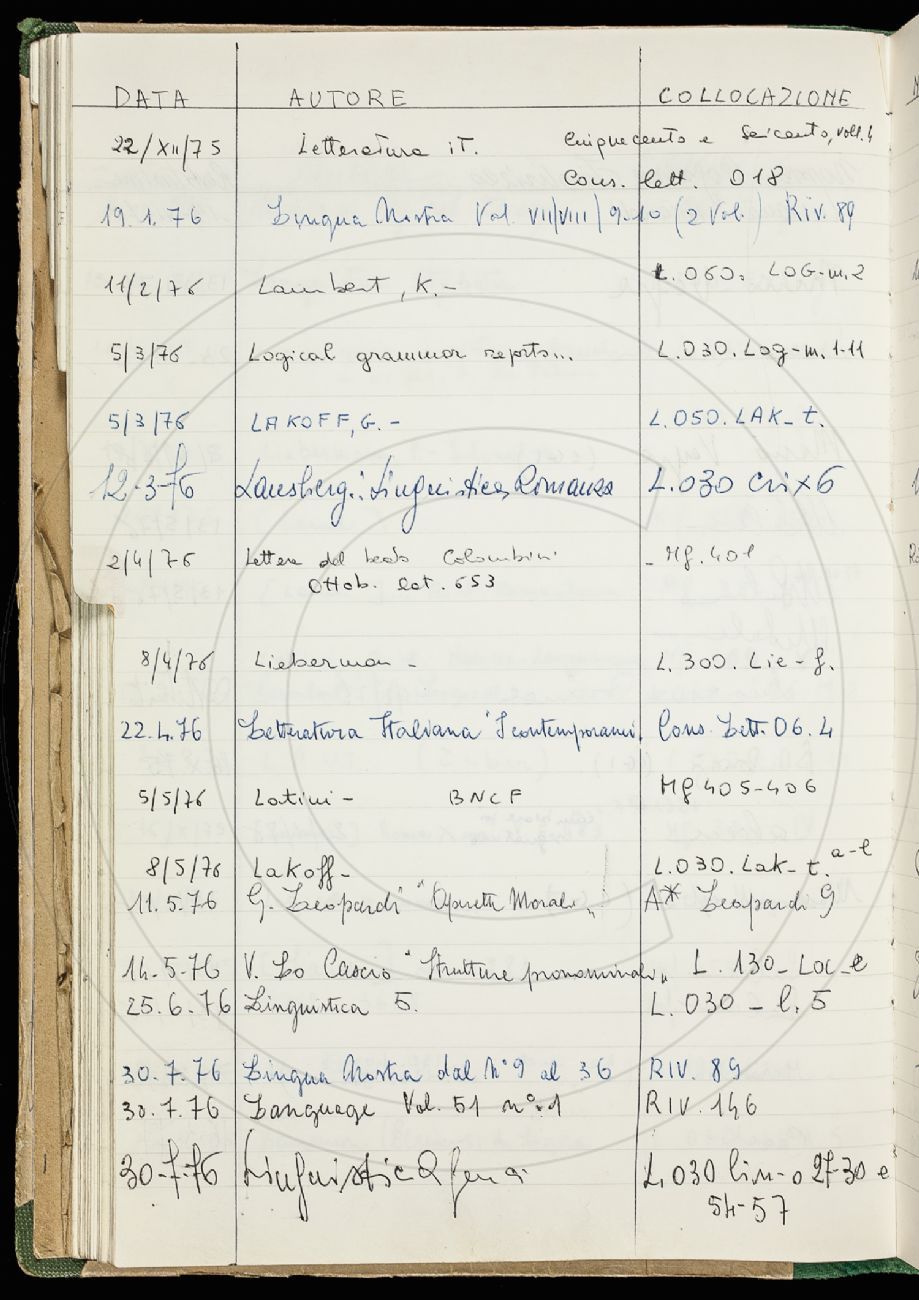 DATA AUTORE COLLOCAZIONE
22/XII/75 Letteratura iT. Cinquecento e Seicento, voll. 4
Cons. lett. 018
19.1.76 Lingua Nostra Vol. VII/VIII/9-10 (2 Vol.) Riv. 89
11/2/76 Lambert, K.- L.060. LOG-m.2
5/3/76 Logical grammar reports... L.030. Log-m. 1-11
5/3/76 LAKOFF, G. - L.050. LAK-t.
12-3-76 Lausberg: Linguistica Romanza L.030 Cri x 6
2/4/76 Lettere del beato Colombini - Mf. 401
Ottob. lat. 653
8/4/76 Lieberman - L.300. Lie-f.
22.4.76 Letteratura Italiana "I contemporanei, Cons. Lett. 06.4
5/5/76 Latini - BNCF Mf 405-406
8/5/76 Lakoff- L.030. Lak-t. a-l
11.5.76 G. Leopardi "Operette Morali" A* Leopardi 9
14.5.76 V. Lo Cascio "Strutture pronominali" L. 130- Loc-e
25.6.76 Linguistica 5. L. 030 - l. 5
30.7.76 Lingua Nostra dal N° 9 al 36 RIV. 89
30.7.76 Language Vol. 51 n°.1 RIV. 146
30-7-76 Linguistic L.030 lin-o 27-30 e
54-57